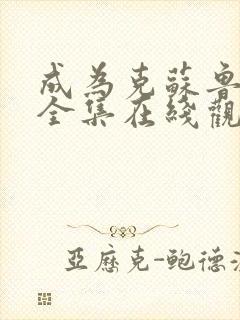 成為克蘇魯
全集在綫觀
亞歷克-鮑德